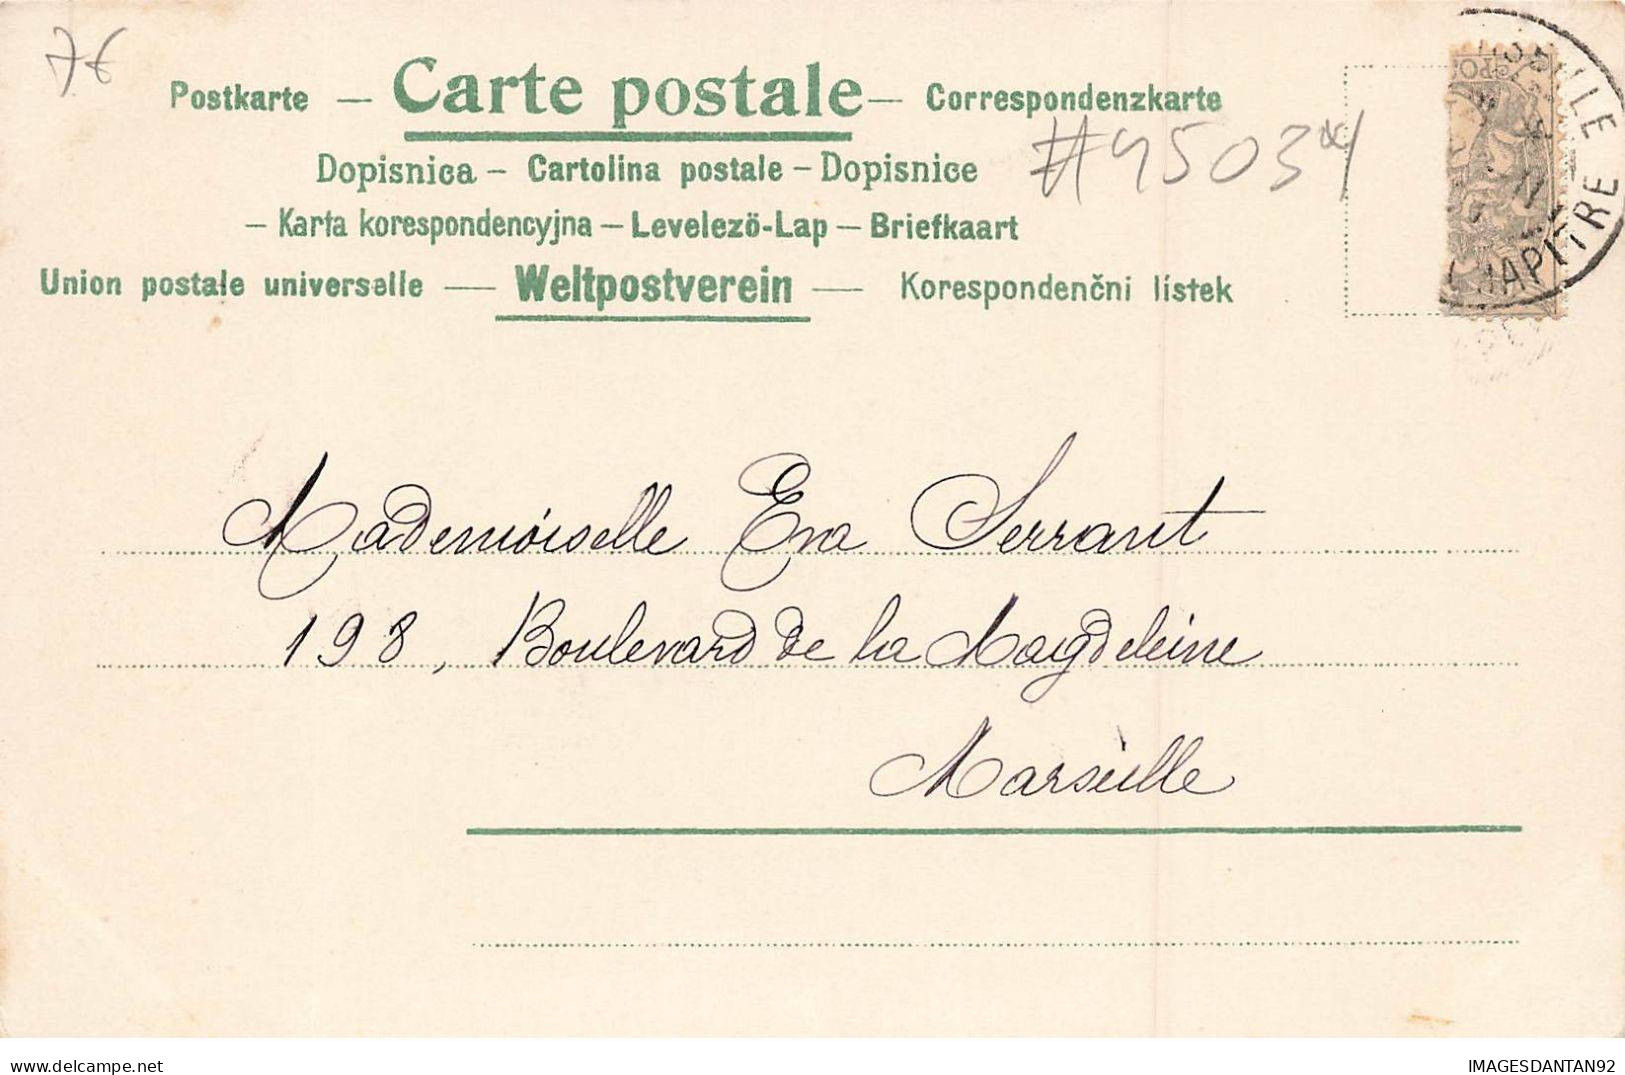 7€
Postkarte — Carte postale — Correspondenzkarte
#45034
Dopisnica – Cartolina postale – Dopisnice
– Karta korespondencyjna – Levelező-Lap – Briefkaart
Union postale universelle — Weltpostverein — Korespondenční lístek
Mademoiselle Eva Serrant
198, Boulevard de la Magdeleine
Marseille
delcampe.net
IMAGESDANTAN92